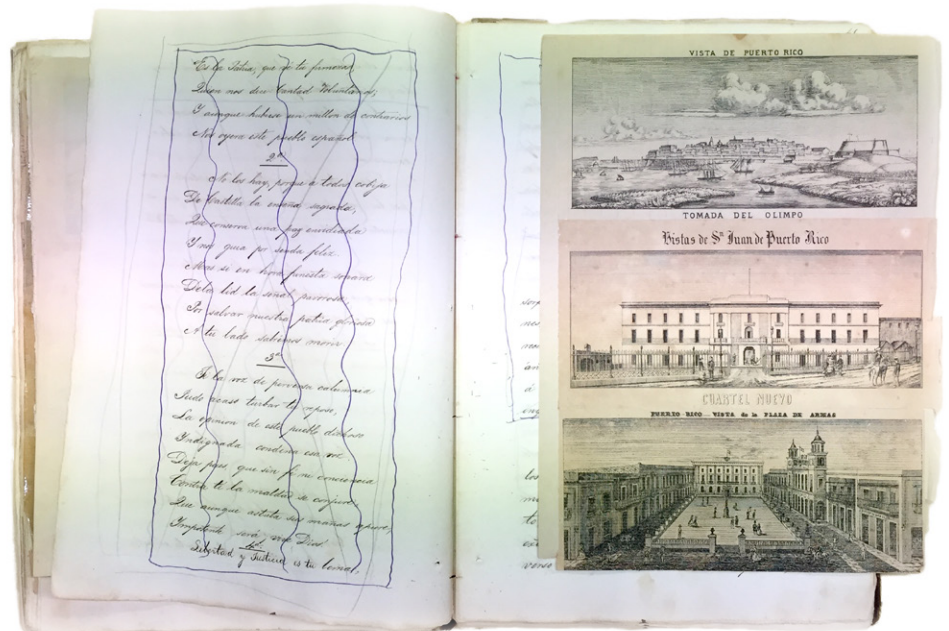 Es la Patria, que de tu
Quien nos dice cantad Voluntarios;
Y aunque hubiere un millon de contrarios
Nos oyera este pueblo español
2ª
No los hay, porque a todos cobija
De Castilla la enseña sagrada,
Que conserva una paz envidiada
Y nos guia por senda feliz
Mas si en hora funesta sonare
De la lid la señal pavorosa,
Por salvar nuestra patria gloriosa
A tu lado sabremos morir
3ª
Si la voz de perversa calumnia
Pudo acaso turbar tu reposo,
La opinion de este pueblo dichoso
Indignada condena esa voz
Deja pues, que sin fé ni conciencia
Contra ti la maldad se conjure,
Que aunque astuta sus mañas apure,
Impotente será, vive Dios
4ª
Libertad y Justicia es tu lema,
VISTA DE PUERTO RICO
TOMADA DEL OLIMPO
Vistas de Sn. Juan de Puerto Rico
CUARTEL NUEVO
PUERTO RICO VISTA de la PLAZA DE ARMAS
los
verso